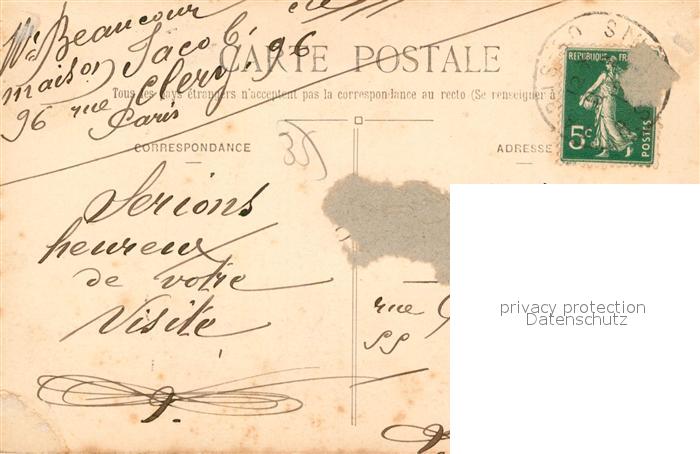 Mr Beaucour
maison Jacob. 96
96 rue Clery.
Paris
CARTE POSTALE
Tous les pays étrangers n'acceptent pas la correspondance au recto (Se renseigner à
CORRESPONDANCE
ADRESSE
35
REPUBLIQUE FR
5c
POSTES
Serions
heureux
de votre
Visite
rue
SS
privacy protection
Datenschutz